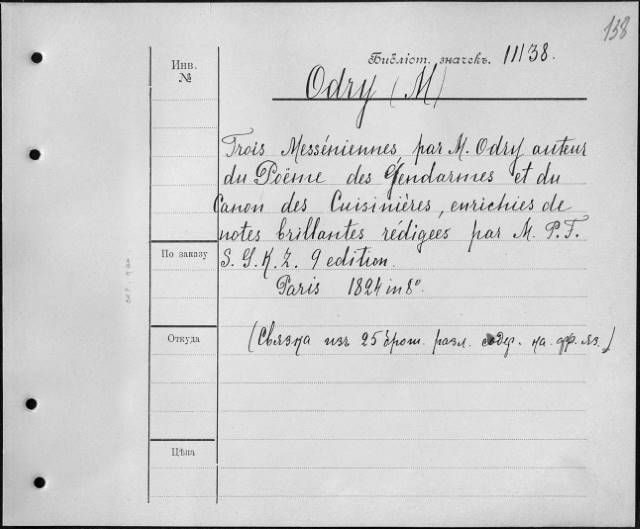 138
Библіот. значекъ. 11138.
Инв.
№
Odry (M)
Trois Messéniennes par M. Odry auteur
du Poëme des Gendarmes et du
Canon des Cuisinières, enrichies de
notes brillantes rédigees par M. P. F.
По заказу
S. G. K. Z. 9 edition.
Paris 1824 in 8º.
Откуда
(Связка изъ 25 брош. разл. содер. на фр. яз.)
Цѣна